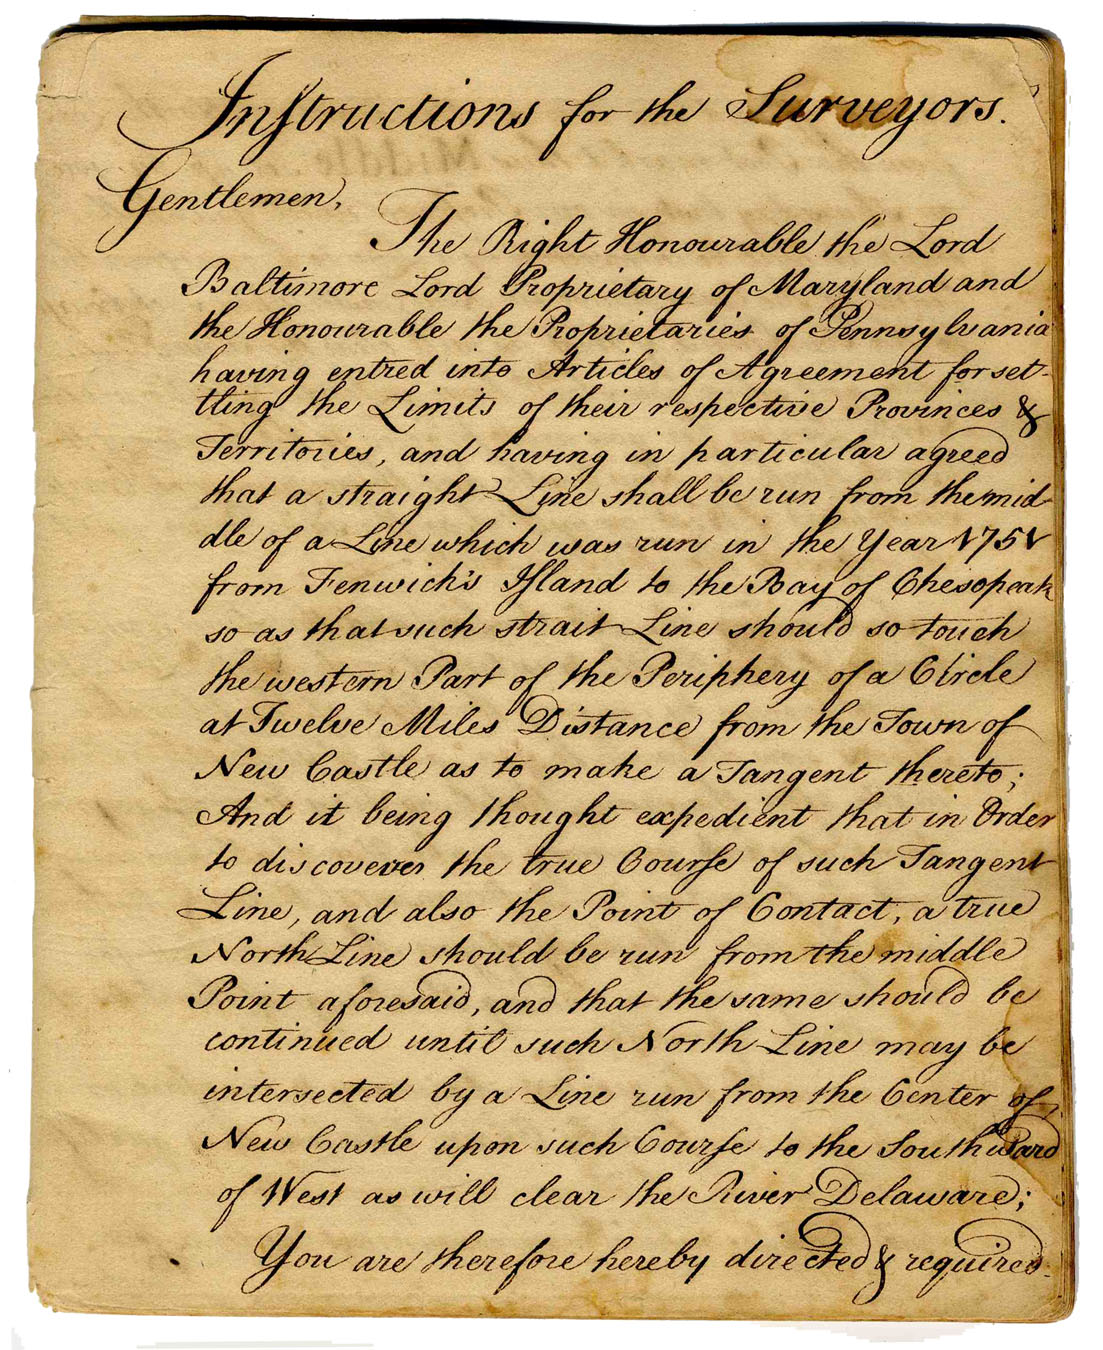 Inſtructions for the Surveyors.
Gentlemen,
The Right Honourable the Lord
Baltimore Lord Proprietary of Maryland and
the Honourable the Proprietaries of Pennsylvania
having entred into Articles of Agreement for set-
tling the Limits of their respective Provinces &
Territories, and having in particular agreed
that a straight Line shall be run from the mid-
dle of a Line which was run in the Year 1751
from Fenwick's Iſland to the Bay of Chesopeak
so as that such strait Line should so touch
the western Part of the Periphery of a Circle
at Twelve Miles Distance from the Town of
New Castle as to make a Tangent thereto;
And it being thought expedient that in Order
to discoverer the true Courſe of such Tangent
Line, and also the Point of Contact, a true
North Line should be run from the middle
Point aforesaid, and that the same should be
continued until such North Line may be
intersected by a Line run from the Center of
New Castle upon such Courſe to the Southward
of West as will clear the River Delaware;
You are therefore hereby directed & required